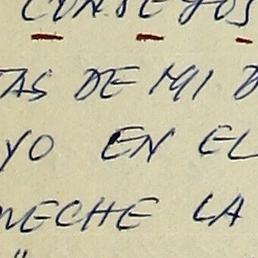 CONSEJOS
TAS DE MI D
YO EN EL
NECHE LA